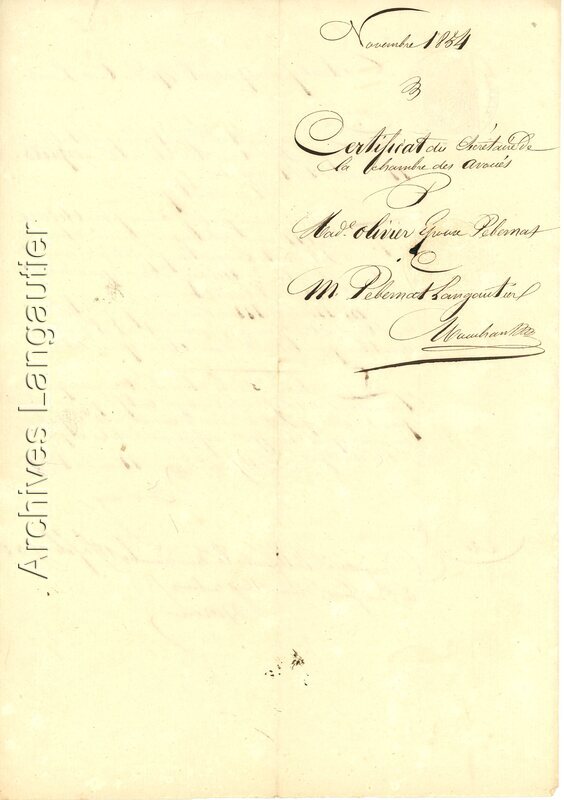 Novembre 1854
Certificat du Secrétaire De
la chambre des avoués
P
Made olivier Epouse Pebernat
C
M. Pebernat Langautier
Archives Langautier